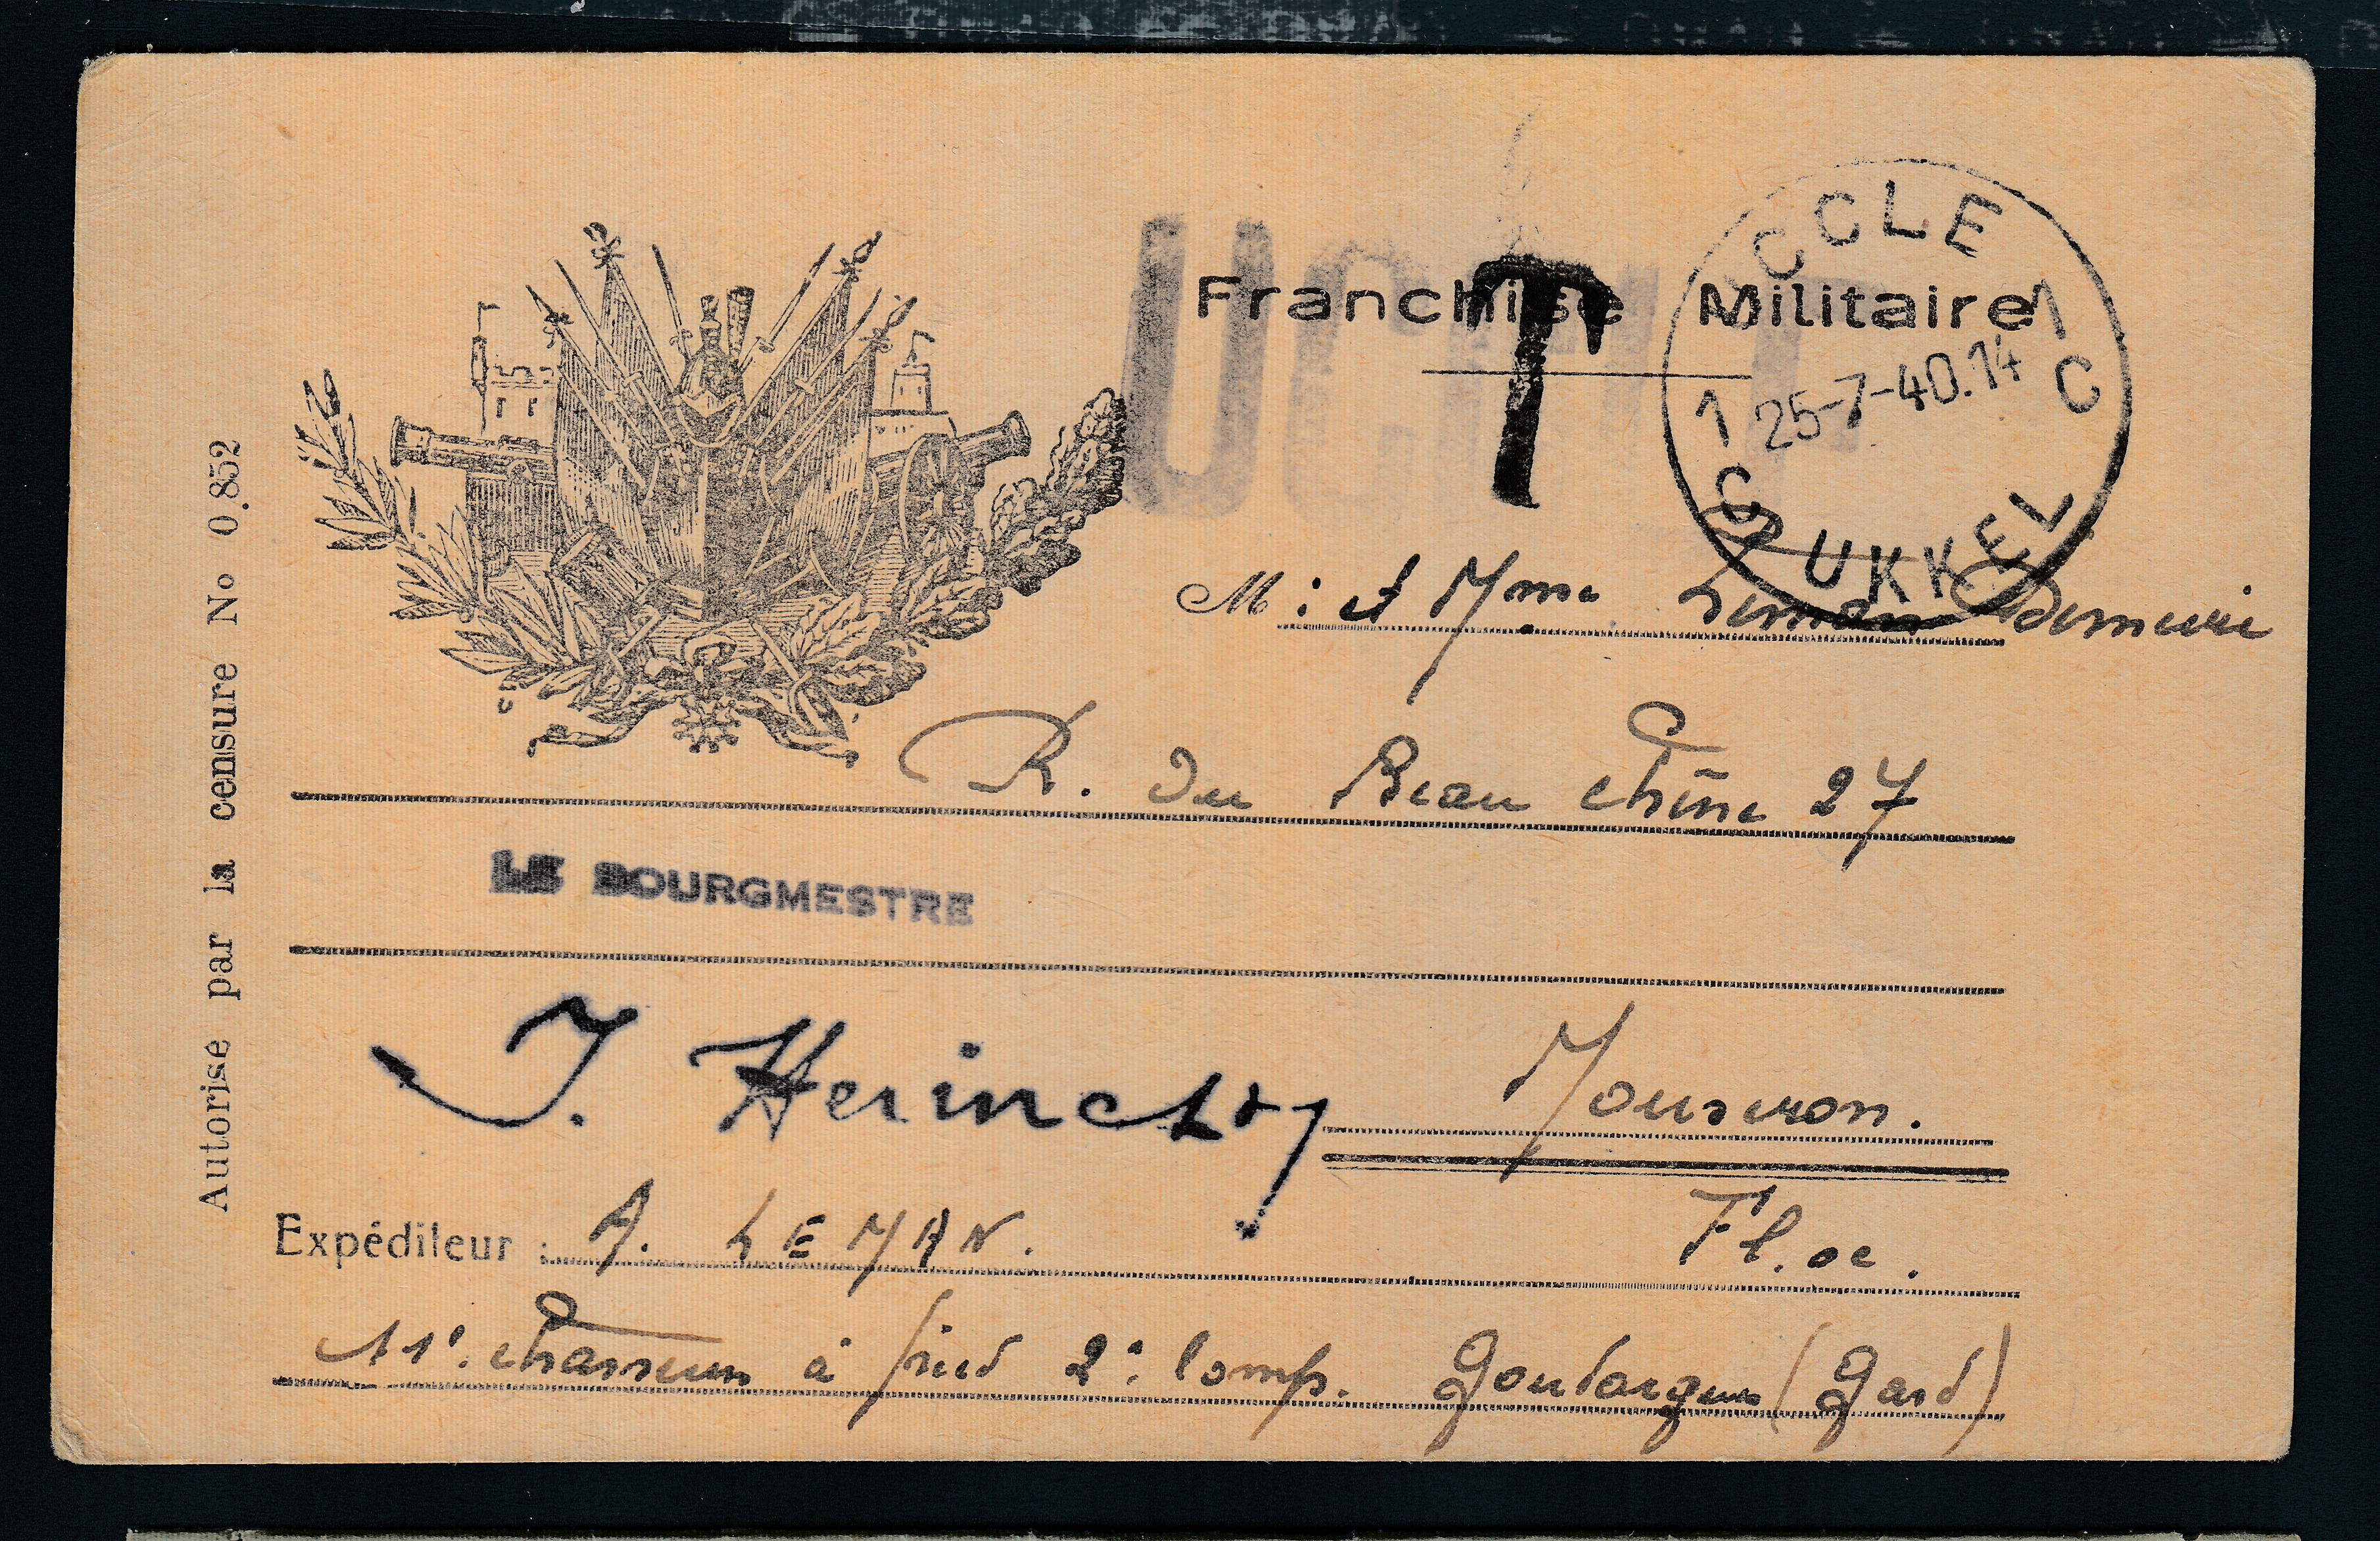 Franchise Militaire
T
UCCLE 1
1 25-7-40.14
C C
UKKEL
M: et Mme Leman Demeire
R. du Beau Chêne 27
LE BOURGMESTRE
J. Herinckx
Mouscron.
Fl. oc.
Expéditeur : A. LEMAN.
11e. Chasseurs à pied 2e. Comp. Goudargues (Gard)
Autorise par la censure No 0.852